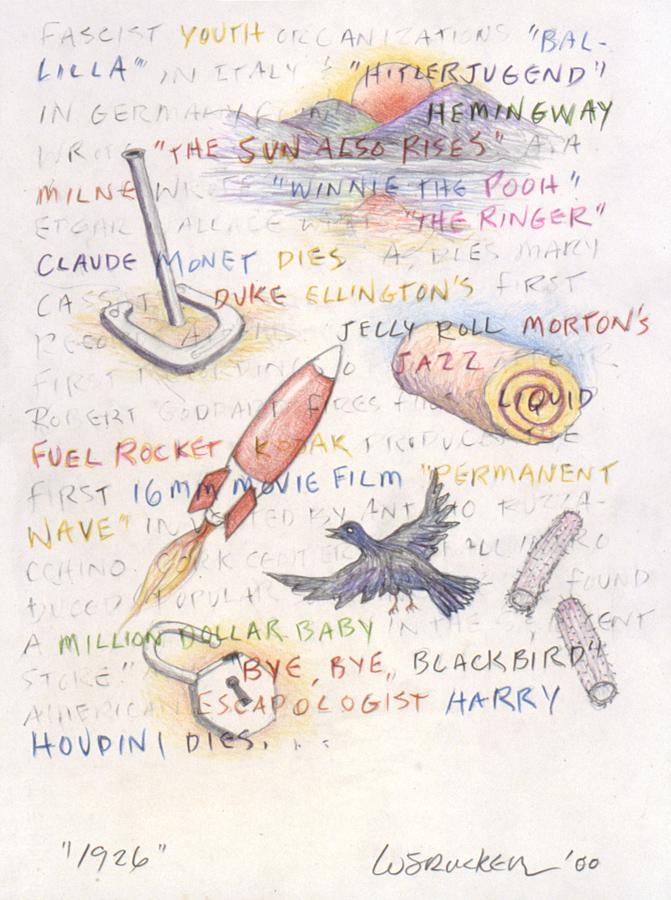 FASCIST YOUTH ORGANIZATIONS "BAL-
LILLA" IN ITALY & "HITLERJUGEND"
IN GERMANY HEMINGWAY
WROTE "THE SUN ALSO RISES" A.A.
MILNE WROTE "WINNIE THE POOH"
EDGAR WALLACE "THE RINGER"
CLAUDE MONET DIES MARY
CASSATT DUKE ELLINGTON'S FIRST
JELLY ROLL MORTON'S
FIRST JAZZ
ROBERT GODDART FIRES LIQUID
FUEL ROCKET KODAK PRODUCES THE
FIRST 16MM MOVIE FILM "PERMANENT
WAVE" INVENTED BY ANTONIO BUZZA-
CCHINO. CORK BALL INTRO
DUCED. POPULAR FOUND
A MILLION DOLLAR BABY IN THE
STORE." "BYE, BYE, BLACKBIRD"
AMERICAN ESCAPOLOGIST HARRY
HOUDINI DIES.
"1926" '00